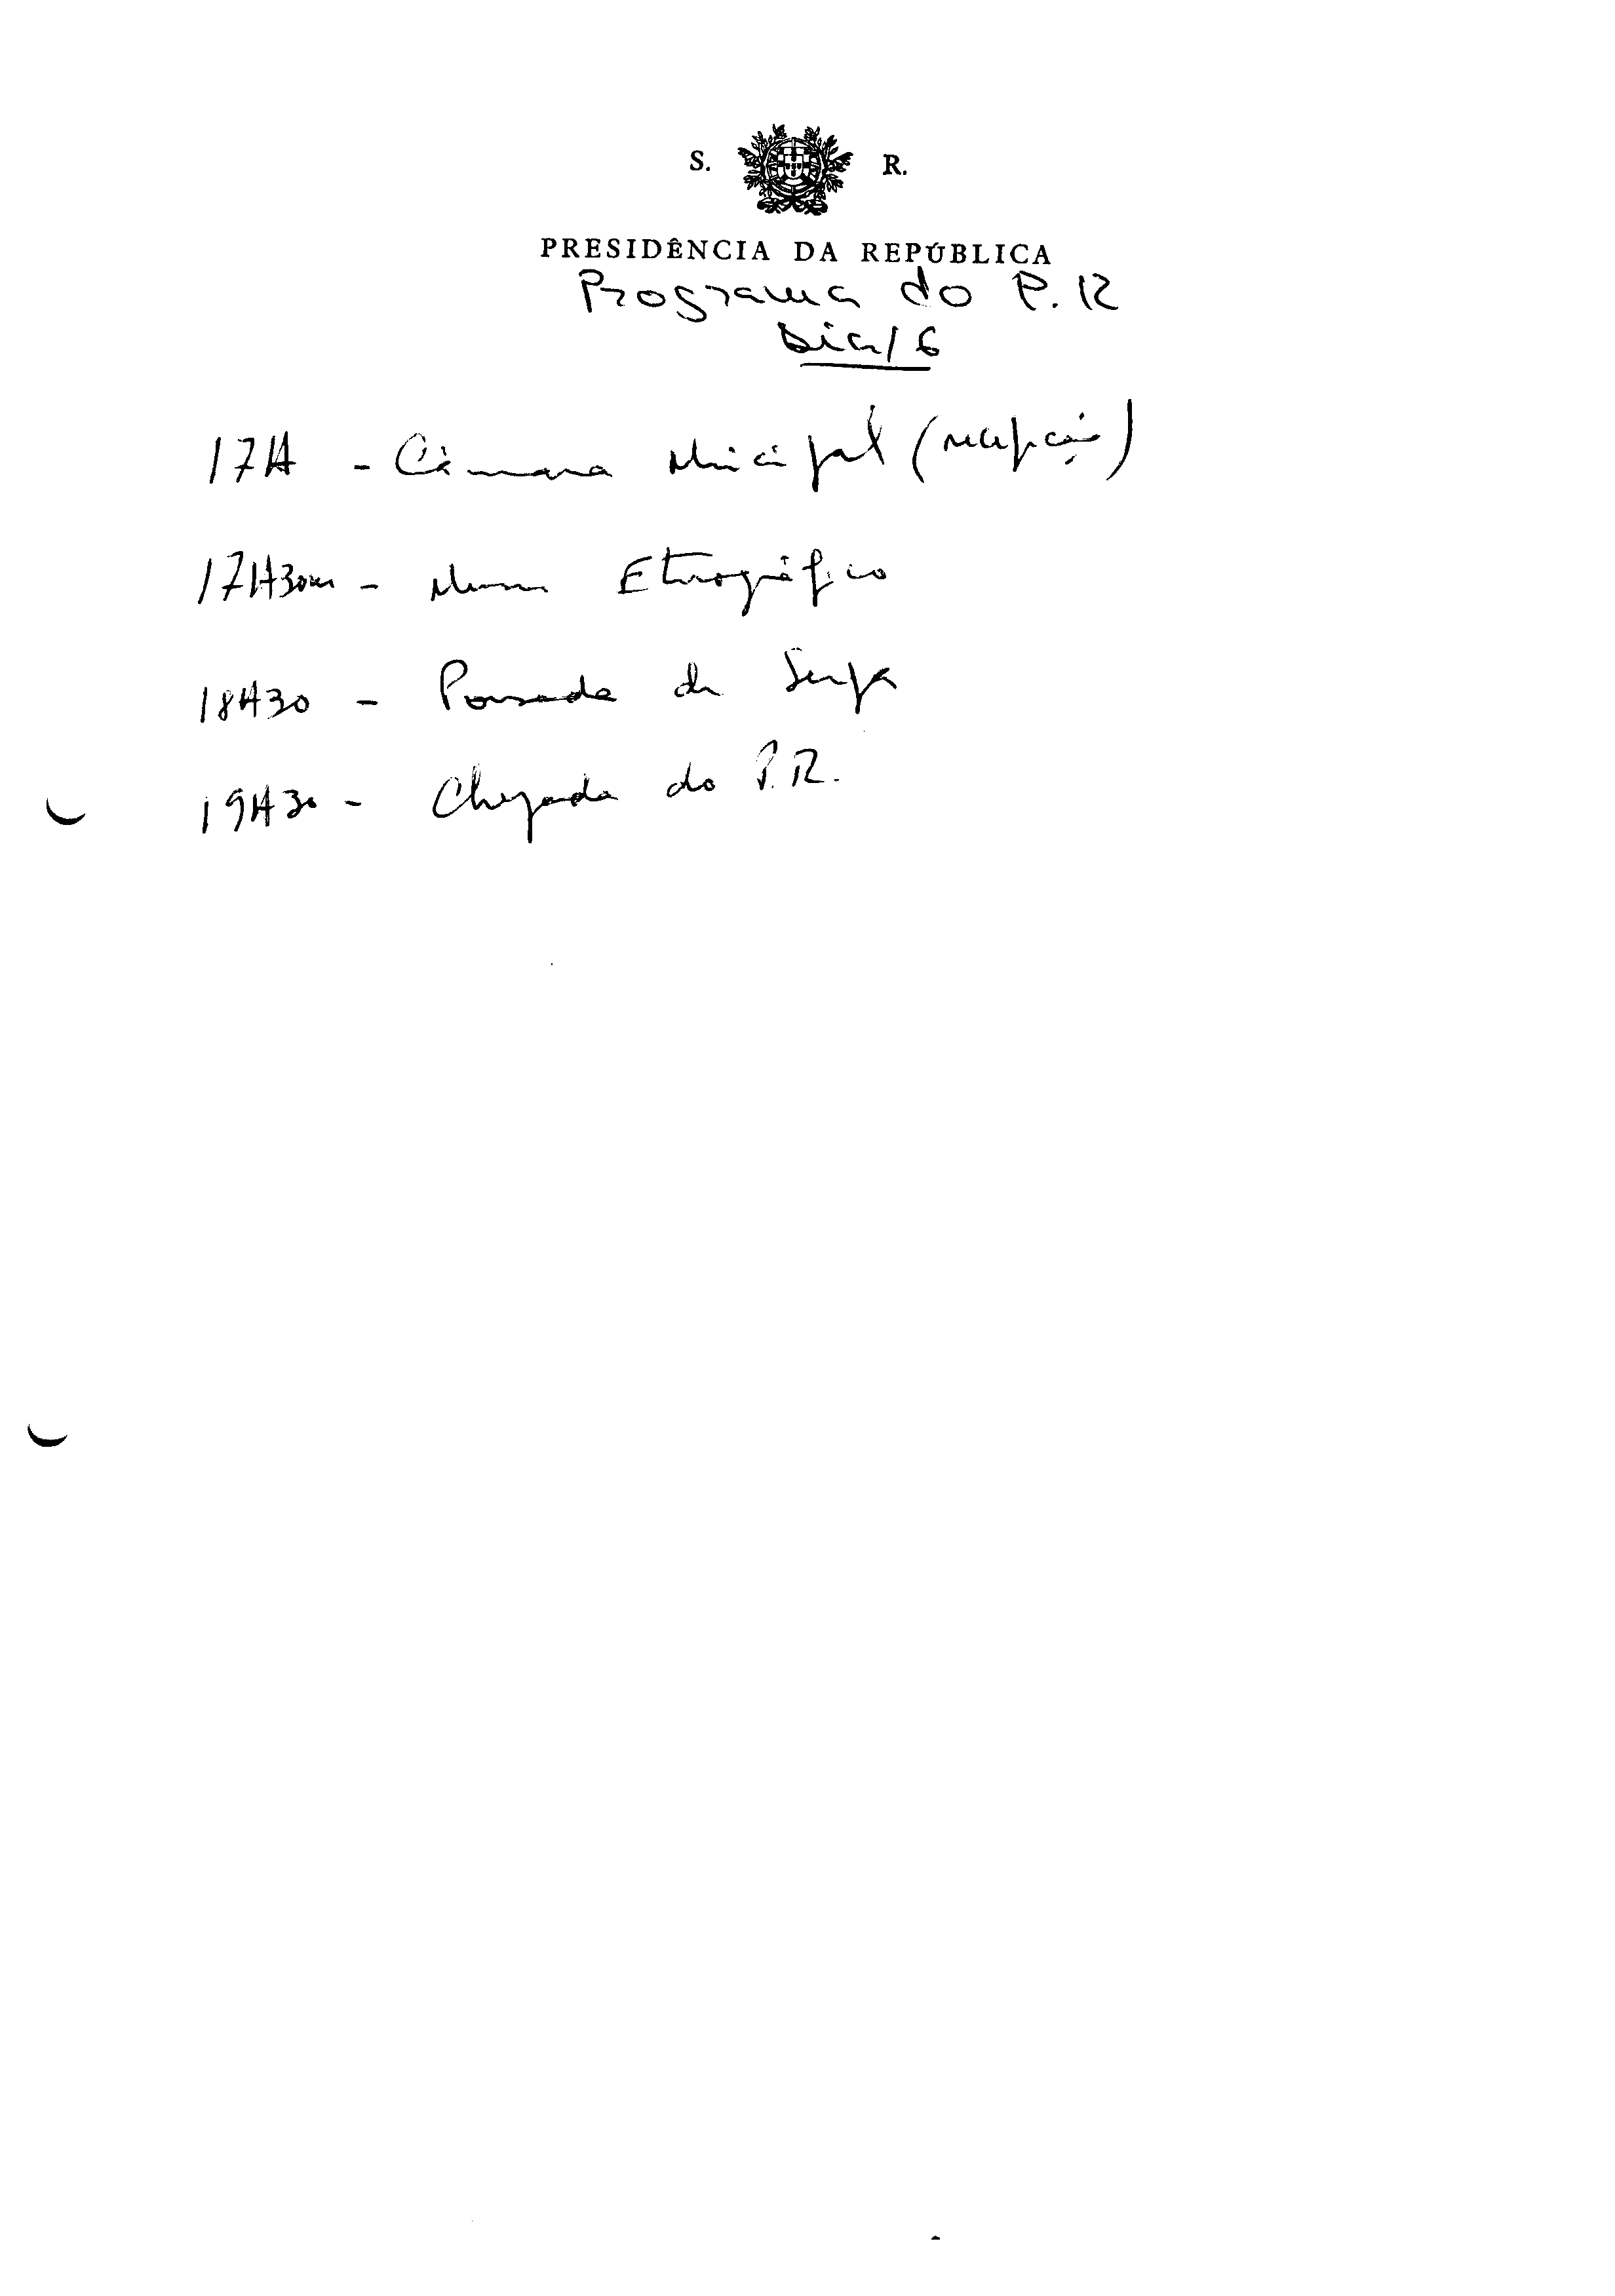 S. R.
PRESIDÊNCIA DA REPÚBLICA
Programa do P.R
Dia 16
17H - Câmara Municipal (recepção)
17H30m - Museu Etnográfico
18H30 - Pousada de Serpa
19H30 - Chegada do P.R.